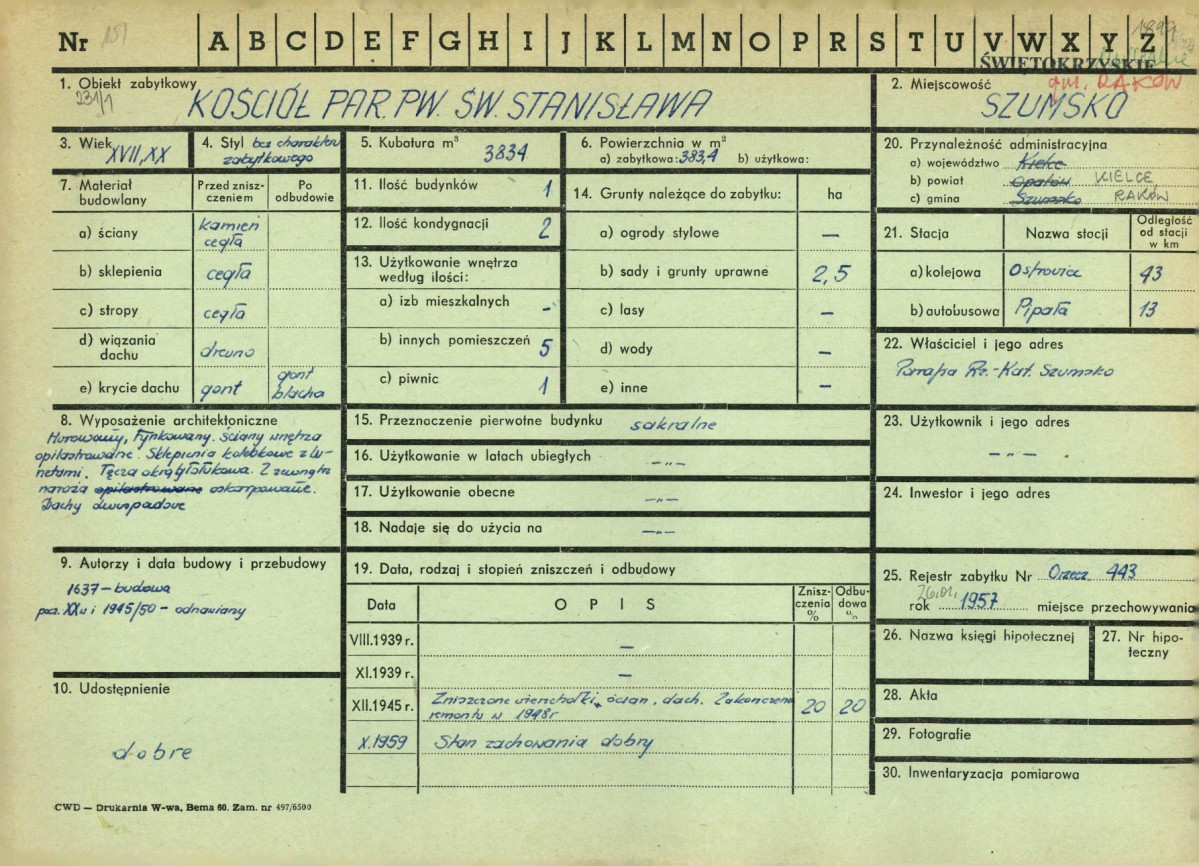 Nr 151 A B C D E F G H I J K L M N O P R S T U V W X Y Z
ŚWIĘTOKRZYSKIE
gm. RAKÓW
1. Obiekt zabytkowy
231/1
KOŚCIÓŁ PAR. PW. ŚW. STANISŁAWA
2. Miejscowość
SZUMSKO
3. Wiek XVII, XX
4. Styl bez charakteru
zabytkowego
5. Kubatura m³ 3834
6. Powierzchnia w m²
a) zabytkowa: 383,4 b) użytkowa:
20. Przynależność administracyjna
a) województwo Kielce
b) powiat Opatów KIELCE
c) gmina Szumsko RAKÓW
7. Materiał
budowlany
Przed znisz-
czeniem
Po
odbudowie
a) ściany kamień
cegła
b) sklepienia cegła
c) stropy cegła
d) wiązania
dachu drewno
e) krycie dachu gont gont
blacha
11. Ilość budynków 1
12. Ilość kondygnacji 2
13. Użytkowanie wnętrza
według ilości:
a) izb mieszkalnych -
b) innych pomieszczeń 5
c) piwnic 1
14. Grunty należące do zabytku: ha
a) ogrody stylowe —
b) sady i grunty uprawne 2,5
c) lasy —
d) wody —
e) inne —
21. Stacja Nazwa stocji Odległość
od stacji
w km
a) kolejowa Ostrowiec 43
b) autobusowa Pipała 13
22. Właściciel i jego adres
Parafia Rz.-Kat. Szumsko
8. Wyposażenie architektoniczne
Murowany, tynkowany. Ściany wnętrza
opilastrowane. Sklepienia kolebkowe z lu-
netami. Tęcza okrągłołukowa. Z zewnątrz
naroża opilastrowane oskarpowane.
Dachy dwuspadowe
15. Przeznoczenie pierwotne budynku sakralne
16. Użytkowanie w latach ubiegłych —„—
17. Użytkowanie obecne —„—
18. Nadaje się do użycia na —„—
23. Użytkownik i jego adres
— „ —
24. Inwestor i jego adres
9. Autorzy i data budowy i przebudowy
1637 – budowa
pocz. XX w i 1945/50 – odnawiany
19. Data, rodzaj i stopień zniszczeń i odbudowy
Data O P I S Znisz-
czenia
%
Odbu-
dowa
%
VIII.1939 r. —
XI.1939 r. —
XII.1945 r. Zniszczone wierzchołki ścian, dach. Zakończenie
remontu w 1948r 20 20
X.1959 Stan zachowania dobry
25. Rejestr zabytku Nr Orzecz 443
rok 26.01. 1957 miejsce przechowywania
26. Nazwa księgi hipotecznej
27. Nr hipo-
teczny
28. Akta
29. Fotografie
30. Inwentaryzacja pomiarowa
10. Udostępnienie
dobre
CWD — Drukarnia W-wa, Bema 60. Zam. nr 497/6500